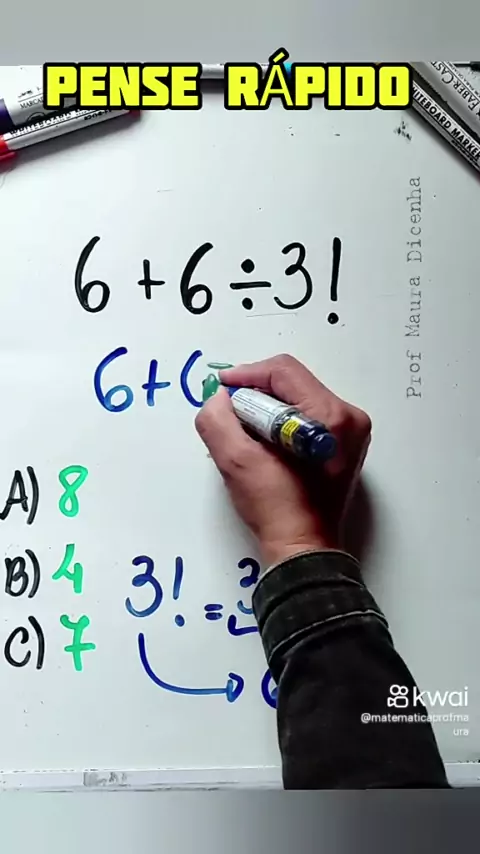 PENSE RÁPIDO
FABER CASTELL
WHITEBOARD MARKER
Prof Maura Dicenha
6+6÷3!
6+6
A) 8
B) 4
C) 7
3! = 3
kwai
@matematicaprofma
ura